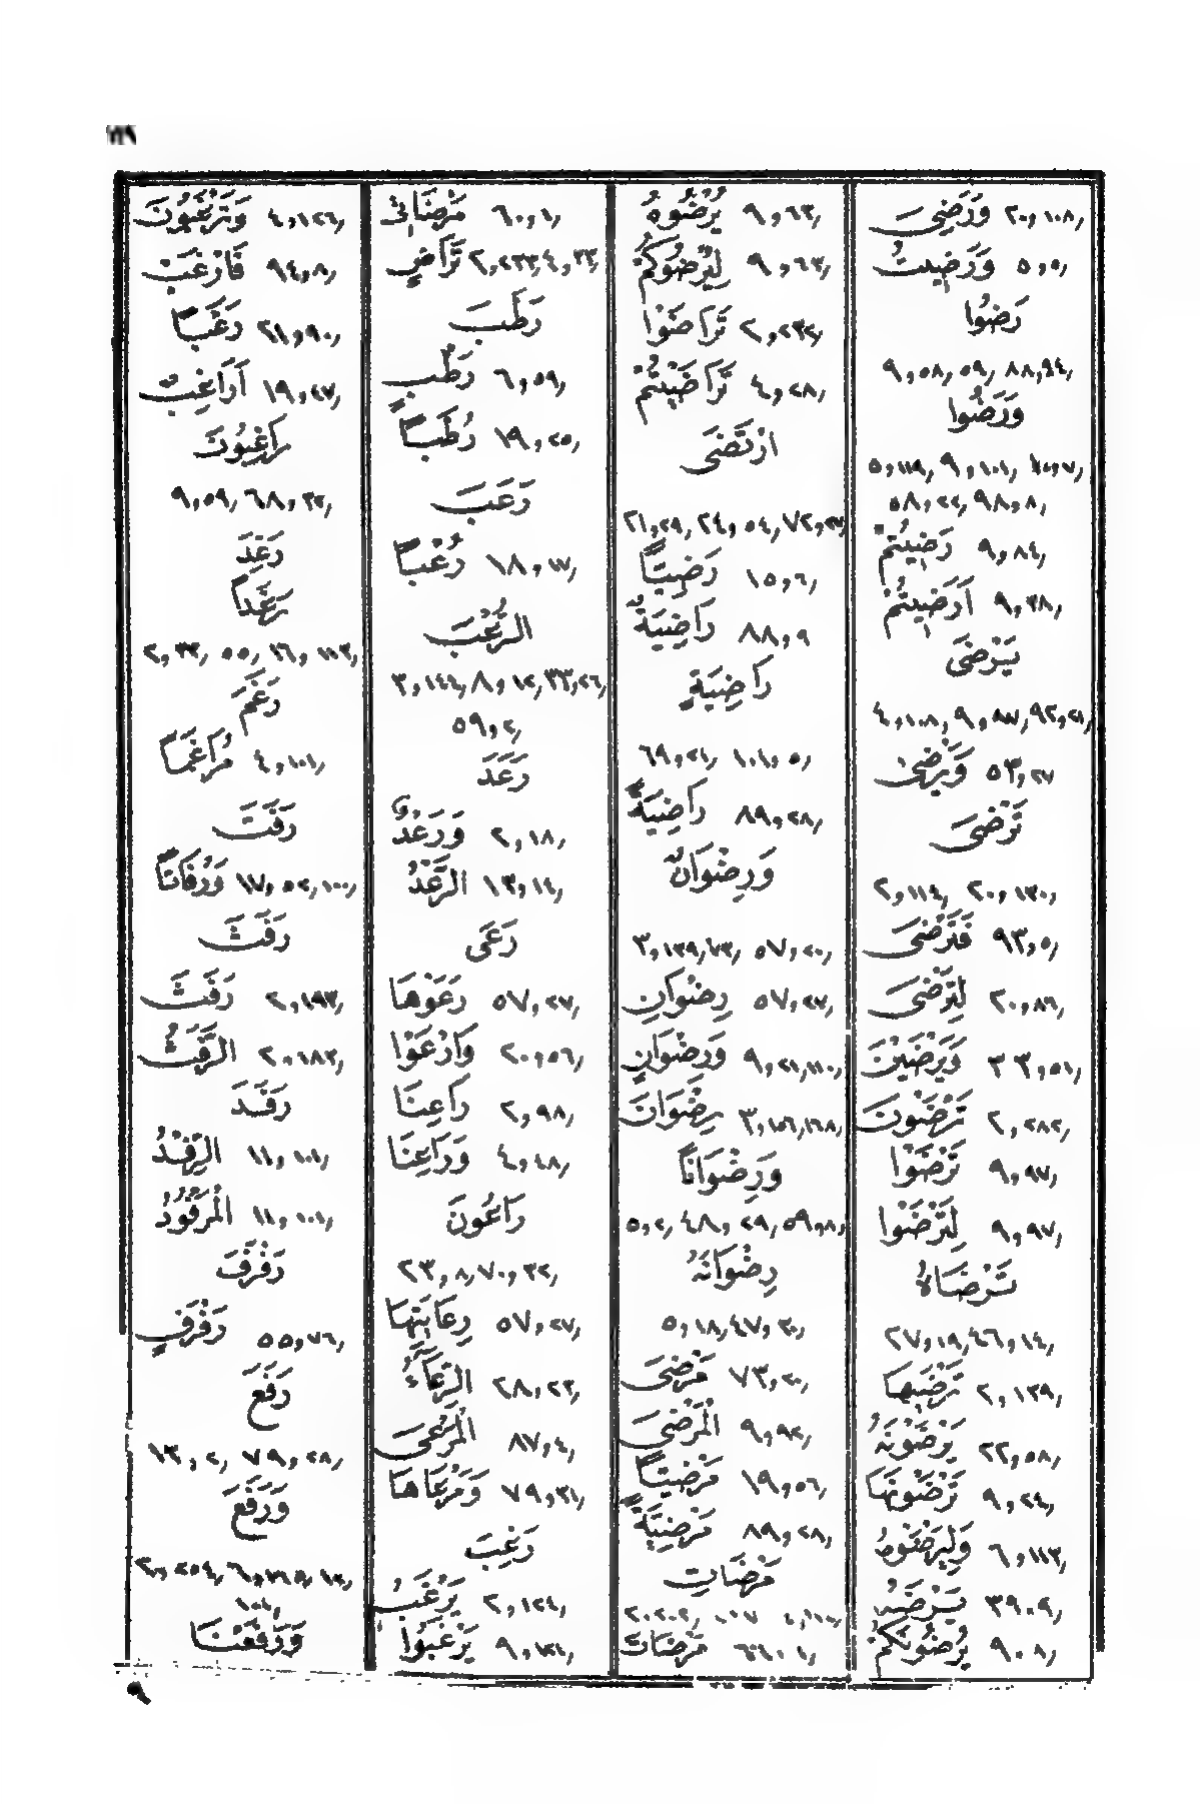 وَرَضِىَ ٢٠,١٠٨/
وَرَضِيتُ ٥,٥/
رَضُوا
٩,٥٨,٥٩/ ٨٨,٩٤/
وَرَضُوا
٥,١١٩/ ٩,١٠١/ ١٠,٧/
٥٨,٢٢/ ٩٨,٨/
رَضِيتُمْ ٩,٨٤/
اَرَضِيتُمْ ٩,٣٨/
يَرْضَى
٤,١٠٨/ ٩,٨٧/ ٩٢,٢١/
وَيَرْضَى ٥٣,٢٧
تَرْضَى
٢,١١٤/ ٢٠,١٣٠/
فَتَرْضَى ٩٣,٥/
لِتَرْضَى ٢٠,٨٦/
وَيَرْضَيْنَ ٣٣,٥١/
تَرْضَوْنَ ٢,٢٨٢/
تَرْضَوْا ٩,٩٧/
لِتَرْضَوْا ٩,٩٧/
تَرْضَاهُ
٢٧,١٩/ ٤٦,١٤/
تَرْضَيهَا ٢,١٣٩/
يَرْضَوْنَهُ ٢٢,٥٨/
تَرْضَوْنَهَا ٩,٢٤/
وَلِيَرْضَوْهُ ٦,١١٣/
يَرْضَهُ ٣٩,٩/
يُرْضُونَكُمْ ٩,٨/
يُرْضُوهُ ٩,٦٣/
لِيُرْضُوكُمْ ٩,٦٣/
تَرَاضَوْا ٢,٢٣٢/
تَرَاضَيْتُمْ ٤,٢٨/
ارْتَضَى
٢١,٢٩/ ٢٤,٥٤/ ٧٢,٢٧/
رَضِيًّا ١٥,٦/
رَاضِيَةٌ ٨٨,٩
رَاضِيَةٍ
٦٩,٢١/ ١٠١,٥/
رَاضِيَةً ٨٩,٢٨/
وَرِضْوَانٌ
٣,١٣٩/٧٣/ ٥٧,٢٠/
رِضْوَانِ ٥٧,٢٧/
وَرِضْوَانٍ ٩,٢١/١١٠/
رِضْوَانَ ٣,١٥٦/١٦٨/
وَرِضْوَانًا
٥,٢/ ٤٨,٢٩/ ٥٩,٨/
رِضْوَانَهُ
٥,١٨/ ٤٧,٣٠/
مَرْضَى ٧٣,٢٠/
الْمَرْضَى ٩,٩٢/
مَرْضِيًّا ١٩,٥٦/
مَرْضِيَّةً ٨٩,٢٨/
مَرْضَاتِ
مَرْضَاتَ
مَرْضَاتِى ٦٠,١/
تَرَاضٍ ٢,٢٣٣/ ٤,٣٣/
رَطَبَ
رَطْبٍ ٦,٥٩/
رُطَبًا ١٩,٢٥/
رَعَبَ
رُعْبًا ١٨,١٧/
الرُّعْبَ
٣,١٤٤/ ٨,١٢/ ٣٣,٢٦/
٥٩,٢/
رَعَدَ
وَرَعْدٌ ٢,١٨/
الرَّعْدُ ١٣,١٤/
رَعَى
رَعَوْهَا ٥٧,٢٧/
وَارْعَوْا ٢٠,٥٦/
رَاعِنَا ٢,٩٨/
وَرَاعِنَا ٤,٤٨/
رَاعُونَ
٢٣,٨/ ٧٠,٣٢/
رِعَايَتِهَا ٥٧,٢٧/
الرِّعَاءُ ٢٨,٢٣/
الْمَرْعَى ٨٧,٤/
وَمَرْعَاهَا ٧٩,٣١/
رَغِبَ
يَرْغَبُ ٢,١٢٤/
يَرْغَبُوا ٩,١٢١/
وَتَرْغَبُونَ ٤,١٢٦/
فَارْغَبْ ٩٤,٨/
رَغَبًا ٢١,٩٠/
اَرَاغِبٌ ١٩,٤٧/
رَاغِبُونَ
٩,٥٩/ ٦٨,٣٢/
رَغَدَ
رَغَدًا
٢,٣٣/ ٥٥/ ١٦,١١٣/
رَغَمَ
مُرَاغَمًا ٤,١٠١/
رَفَتَ
وَرُفَاتًا ١٧,٥٢/١٠٠/
رَفَثَ
رَفَثَ ٢,١٩٣/
الرَّفَثُ ٢,١٨٣/
رَفَدَ
الرِّفْدُ ١١,١٠١/
الْمَرْفُودُ ١١,١٠١/
رَفْرَفَ
رَفْرَفٍ ٥٥,٧٦/
رَفَعَ
١٣,٢/ ٧٩,٢٨/
وَرَفَعَ
وَرَفَعْنَا
٩